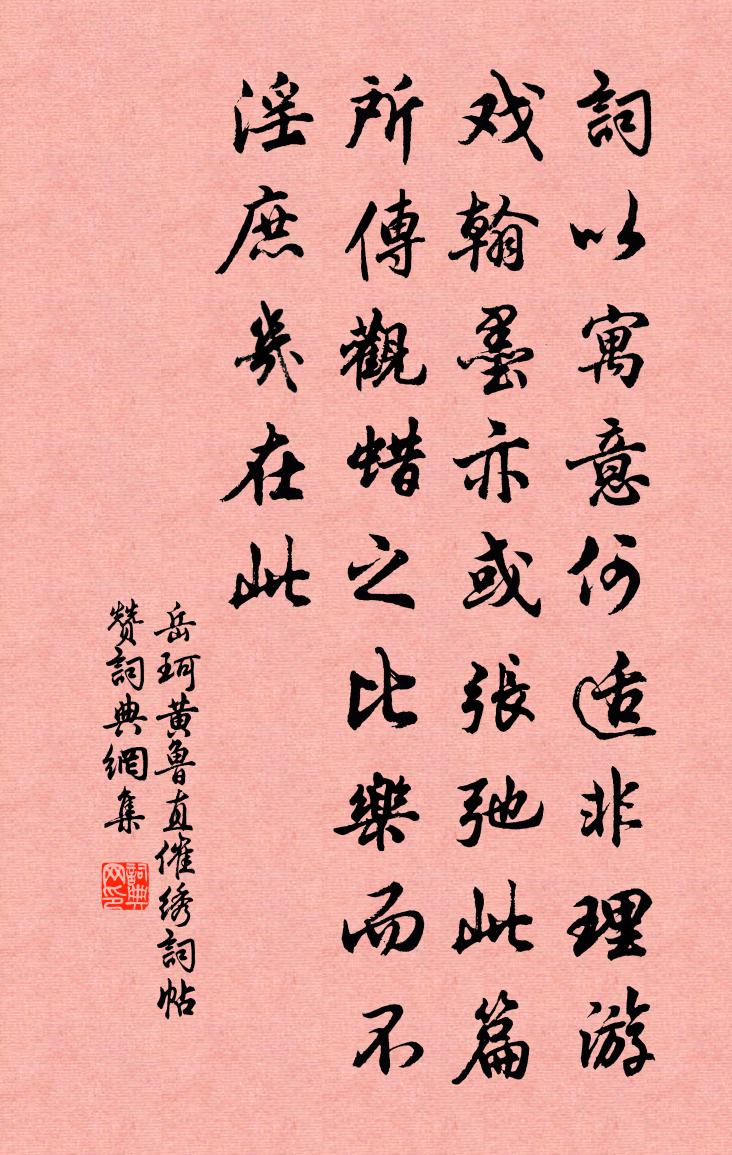 詞以寓意何适非理游
戏翰墨亦或張弛此篇
所傳觀蜡之比樂而不
淫庶幾在此
岳珂黄魯直催绣詞帖
赞詞典網集
詞典网印